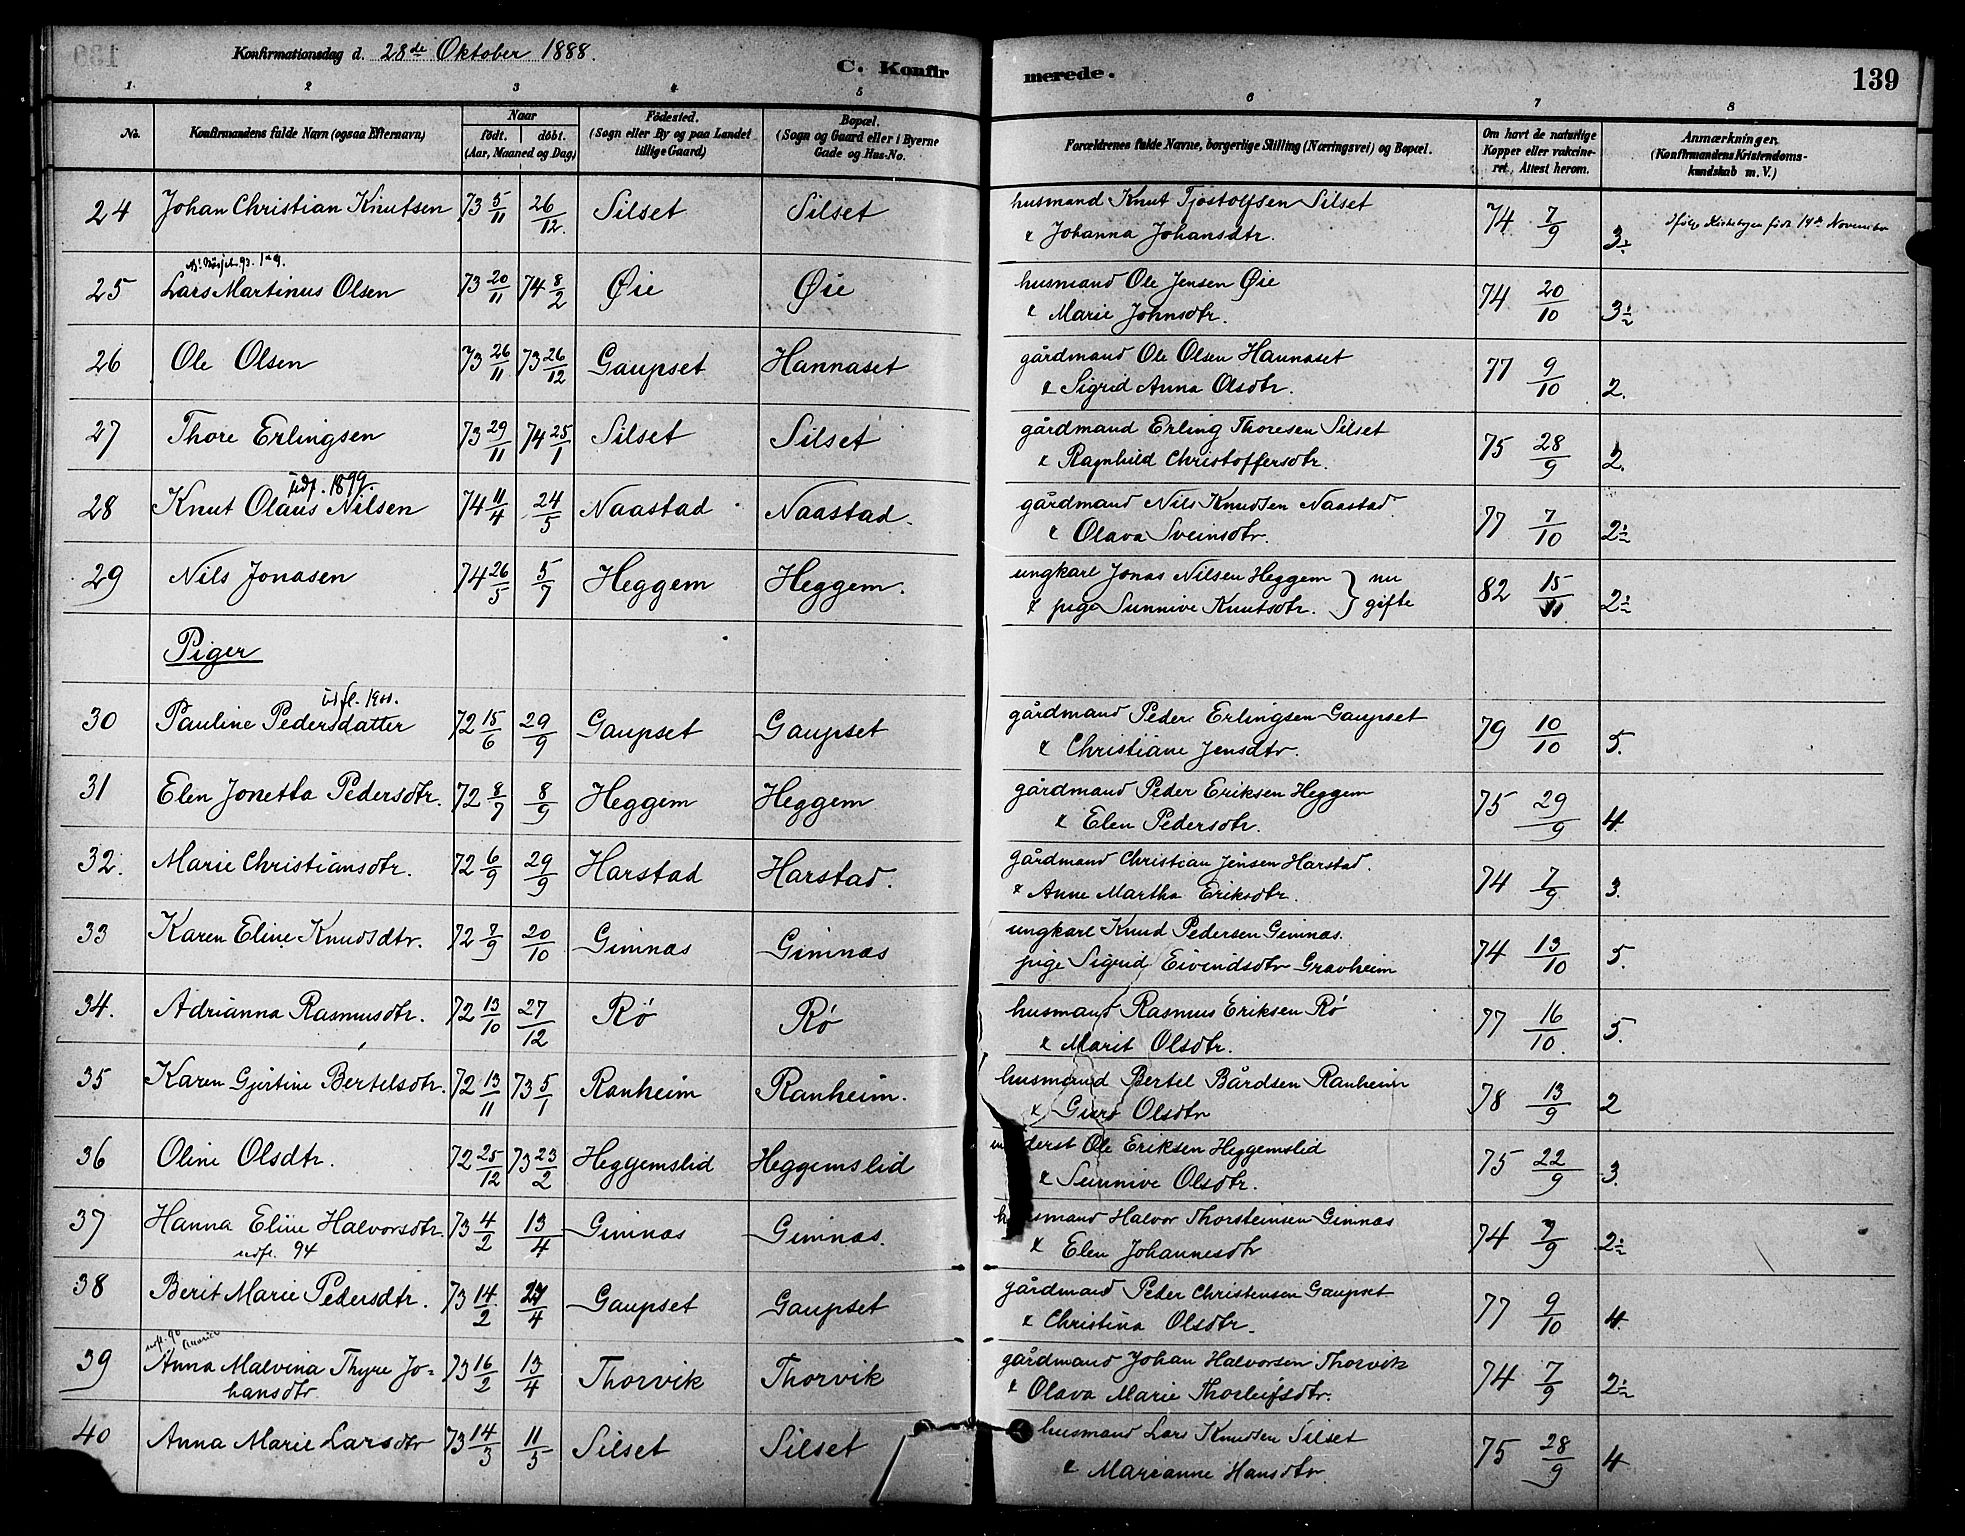 Konfirmationsdag d. 28de Oktober 1888.
C. Konfirmerede.
139
1. 2 3 4 5 6 7 8
No.
Konfirmandens fulde Navn (ogsaa Efternavn)
Naar
født. døbt.
(Aar, Maaned og Dag)
Fødested.
(Sogn eller By og paa Landet
tillige Gaard)
Bopæl.
(Sogn og Gaard eller i Byerne
Gade og Hus-No.
Forældrenes fulde Navne, borgerlige Stilling (Næringsvei) og Bopæl.
Om havt de naturlige
Kopper eller vakcine-
ret, Attest herom.
Anmærkninger.
(Konfirmandens Kristendoms-
kundskab m. V.)
24 Johan Christian Knutsen 73 5/11 26/12 Silset Silset husmand Knut Tjøstolfsen Silset 74 7/9 3½ ifølge Kirkebogen født 14de November
& Johanna Johansdtr.
25 Lars Martinus Olsen 73 20/11 74 8/2 Øie Øie husmand Ole Jensen Øie 74 20/10 3½
& Marie Johnsdtr.
26 Ole Olsen 73 26/11 73 26/12 Gaupset Hannaset gårdmand Ole Olsen Hannaset 77 9/10 2.
& Sigrid Anna Olsdtr.
27 Thore Erlingsen 73 29/11 74 25/1 Silset Silset gårdmand Erling Thoresen Silset 75 28/9 2.
& Ragnhild Christoffersdtr.
udf. 1899.
28 Knut Olaus Nilsen 74 11/4 24/5 Naastad Naastad. gårdmand Nils Knudsen Naastad. 77 7/10 2½
& Olava Sveinsdtr.
29 Nils Jonasen 74 26/5 5/7 Heggem Heggem. ungkarl Jonas Nilsen Heggem } nu 82 15/11 2½
& pige Sunnive Knutsdtr. } gifte
Piger
udfl. 1900.
30 Pauline Pedersdatter 72 15/6 29/9 Gaupset Gaupset gårdmand Peder Erlingsen Gaupset 79 10/10 5.
& Christiane Jensdtr.
31 Elen Jonetta Pedersdtr. 72 8/7 8/9 Heggem Heggem gårdmand Peder Eriksen Heggem 75 29/9 4.
& Elen Pedersdtr.
32. Marie Christiansdtr. 72 6/9 29/9 Harstad Harstad. gårdmand Christian Jensen Harstad. 74 7/9 3.
& Anne Martha Eriksdtr.
33 Karen Eline Knudsdtr. 72 7/9 20/10 Gimnæs Gimnæs ungkarl Knud Pedersen Gimnæs. 74 13/10 5.
pige Sigrid Eivindsdtr Gravheim
34. Adrianna Rasmusdtr. 72 13/10 27/12 Rø Rø husmand Rasmus Eriksen Rø 77 16/10. 5.
& Marit Olsdtr.
35 Karen Gjertine Bertelsdtr. 72 13/11 73 5/1 Ranheim Ranheim. husmand Bertel Bårdsen Ranheim 78 13/9 2
& Guro Olsdtr
36 Oline Olsdtr. 72 25/12 73 23/2 Heggemslid Heggemslid inderst Ole Eriksen Heggemslid 75 22/9 3.
& Sunnive Olsdtr.
37 Hanna Eline Halvorsdtr. 73 4/2 13/4 Gimnæs Gimnæs. husmand Halvor Thorsteinsen Gimnæs 74 7/9 2½
udfl. 94 & Elen Johannesdtr
38 Berit Marie Pedersdtr. 73 14/2 27/4 Gaupset Gaupset gårdmand Peder Christensen Gaupset 77 9/10 4.
& Christina Olsdtr.
udfl. 90 Amerika
39 Anna Malvina Thyre Jo- 73 16/2 13/4 Thorvik Thorvik gårdmand Johan Halvorsen Thorvik 74 7/9 2½
hansdtr. & Olava Marie Thorleifsdtr.
40 Anna Marie Larsdtr 73 14/3 11/5 Silset Silset husmand Lars Knudsen Silset 75 28/9 4
& Marianne Hansdtr.